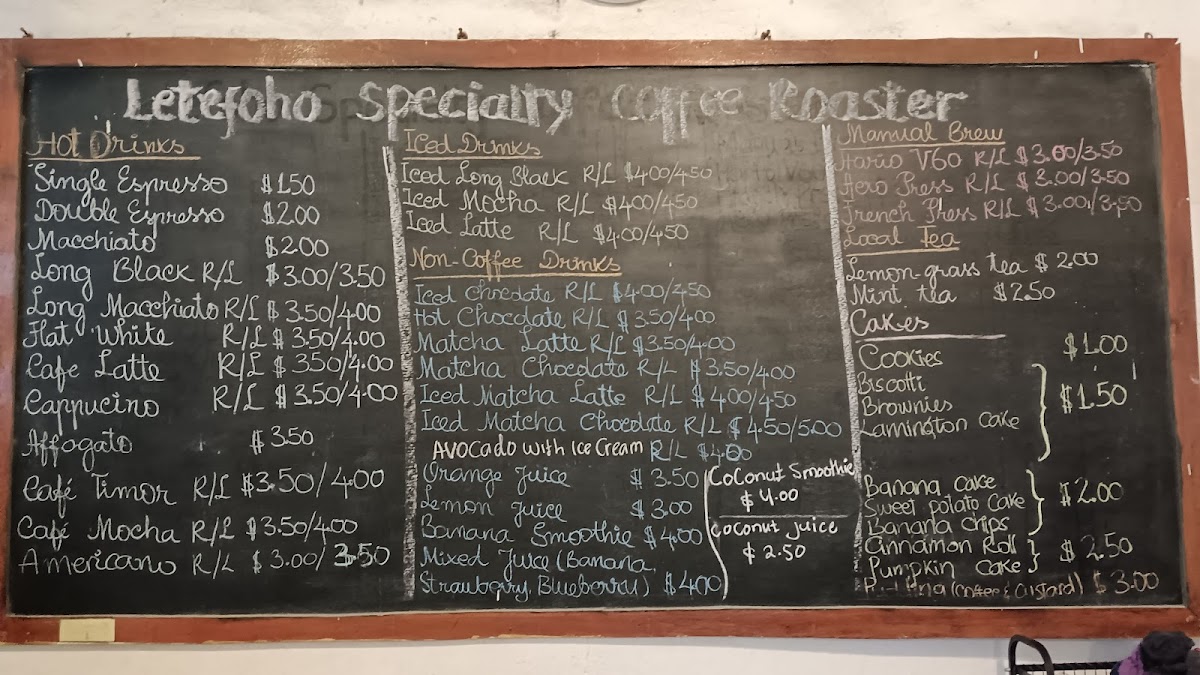 Letefoho Specialty Coffee Roaster
Hot Drinks
Single Espresso $1.50
Double Espresso $2.00
Macchiato $2.00
Long Black R/L $3.00/3.50
Long Macchiato R/L $3.50/4.00
Flat White R/L $3.50/4.00
Cafe Latte R/L $3.50/4.00
Cappucino R/L $3.50/4.00
Affogato $3.50
Café Timor R/L $3.50/4.00
Café Mocha R/L $3.50/4.00
Americano R/L $3.00/3.50
Iced Drinks
Iced Long Black R/L $4.00/4.50
Iced Mocha R/L $4.00/4.50
Iced Latte R/L $4.00/4.50
Non-Coffee Drinks
Iced Chocolate R/L $4.00/4.50
Hot Chocolate R/L $3.50/4.00
Matcha Latte R/L $3.50/4.00
Matcha Chocolate R/L $3.50/4.00
Iced Matcha Latte R/L $4.00/4.50
Iced Matcha Chocolate R/L $4.50/5.00
Avocado with Ice Cream R/L $4.00
Orange Juice $3.50
Lemon Juice $3.00
Banana Smoothie $4.00
Mixed Juice (Banana,
Strawberry, Blueberry) $4.00
Coconut Smoothie
$4.00
Coconut juice
$2.50
Manual Brew
Hario V60 R/L $3.00/3.50
Aero Press R/L $3.00/3.50
French Press R/L $3.00/3.50
Local Tea
Lemon-grass tea $2.00
Mint tea $2.50
Cakes
Cookies $1.00
Biscotti
Brownies $1.50
Lamington Cake
Banana Cake
Sweet Potato Cake $2.00
Banana Chips
Cinnamon Roll $2.50
Pumpkin Cake
(Coffee & Custard) $3.00